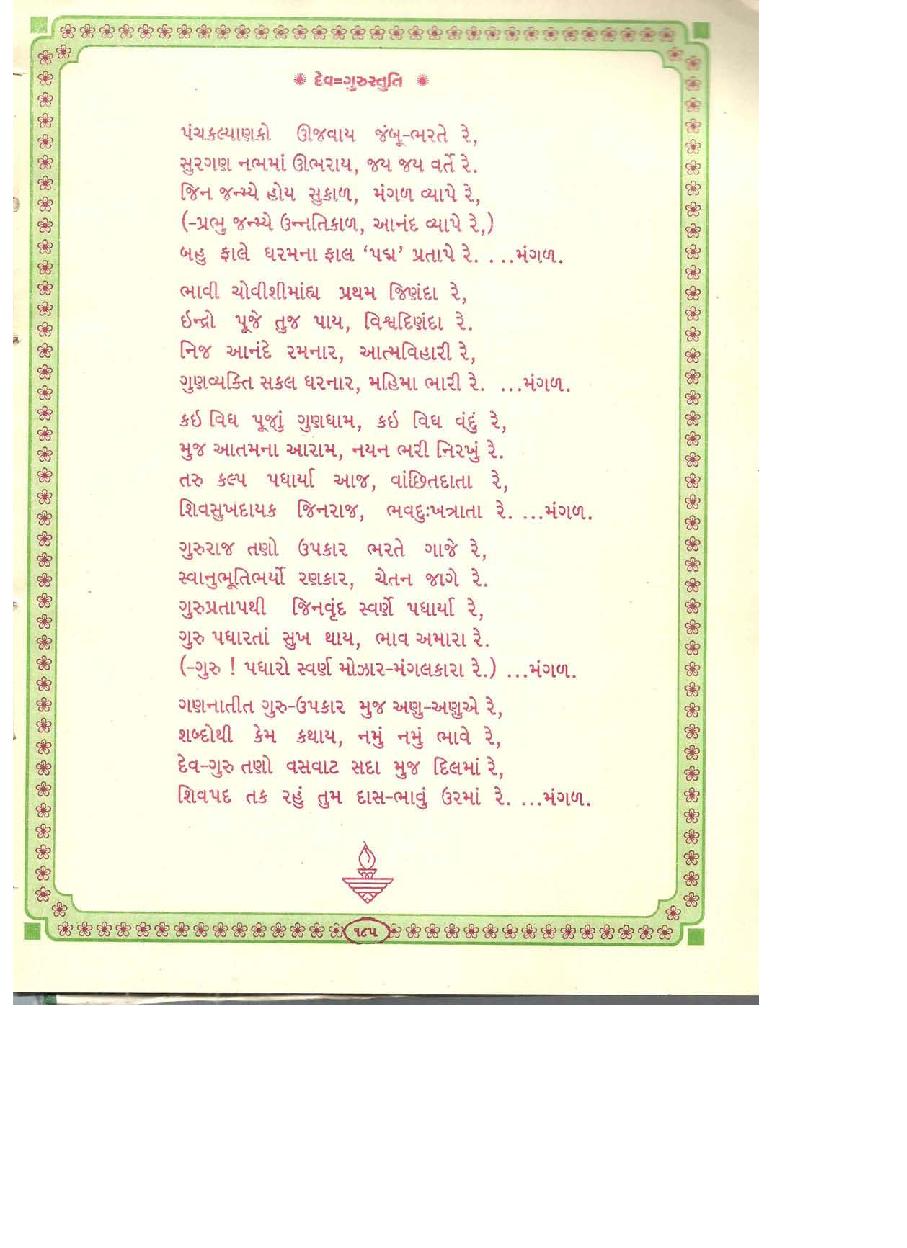 દેવ=ગુરુસ્તુતિ
પંચકલ્યાણકો ઊજવાય જંબૂ-ભરતે રે,
સુરગણ નભમાં ઊભરાય, જય જય વર્તે રે.
જિન જન્મ્યે હોય સુકાળ, મંગળ વ્યાપે રે,
(-પ્રભુ જન્મ્યે ઉન્નતિકાળ, આનંદ વ્યાપે રે,)
બહુ ફાલે ધરમના ફાલ ‘પદ્મ’ પ્રતાપે રે. ...મંગળ.
ભાવી ચોવીશીમાંહ્ય પ્રથમ જિણંદા રે,
ઇન્દ્રો પૂજે તુજ પાય, વિશ્વદિણંદા રે.
નિજ આનંદે રમનાર, આત્મવિહારી રે,
ગુણવ્યક્તિ સકલ ધરનાર, મહિમા ભારી રે. ...મંગળ.
કઇ વિધ પૂજું ગુણધામ, કઇ વિધ વંદું રે,
મુજ આતમના આરામ, નયન ભરી નિરખું રે.
તરુ કલ્પ પધાર્યા આજ, વાંછિતદાતા રે,
શિવસુખદાયક જિનરાજ, ભવદુઃખત્રાતા રે. ...મંગળ.
ગુરુરાજ તણો ઉપકાર ભરતે ગાજે રે,
સ્વાનુભૂતિભર્યો રણકાર, ચેતન જાગે રે.
ગુરુપ્રતાપથી જિનવૃંદ સ્વર્ણે પધાર્યા રે,
ગુરુ પધારતાં સુખ થાય, ભાવ અમારા રે.
(-ગુરુ ! પધારો સ્વર્ણ મોઝાર-મંગલકારા રે.) ...મંગળ.
ગણનાતીત ગુરુ-ઉપકાર મુજ અણુ-અણુએ રે,
શબ્દોથી કેમ કથાય, નમું નમું ભાવે રે,
દેવ-ગુરુ તણો વસવાટ સદા મુજ દિલમાં રે,
શિવપદ તક રહું તુમ દાસ-ભાવું ઉરમાં રે. ...મંગળ.
૧૮૫